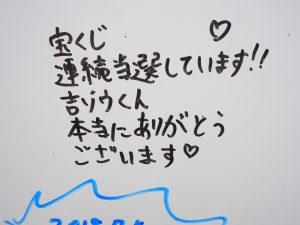 宝くじ ♡
連続当選しています!!
吉ゾウくん
本当にありがとう
ございます♡